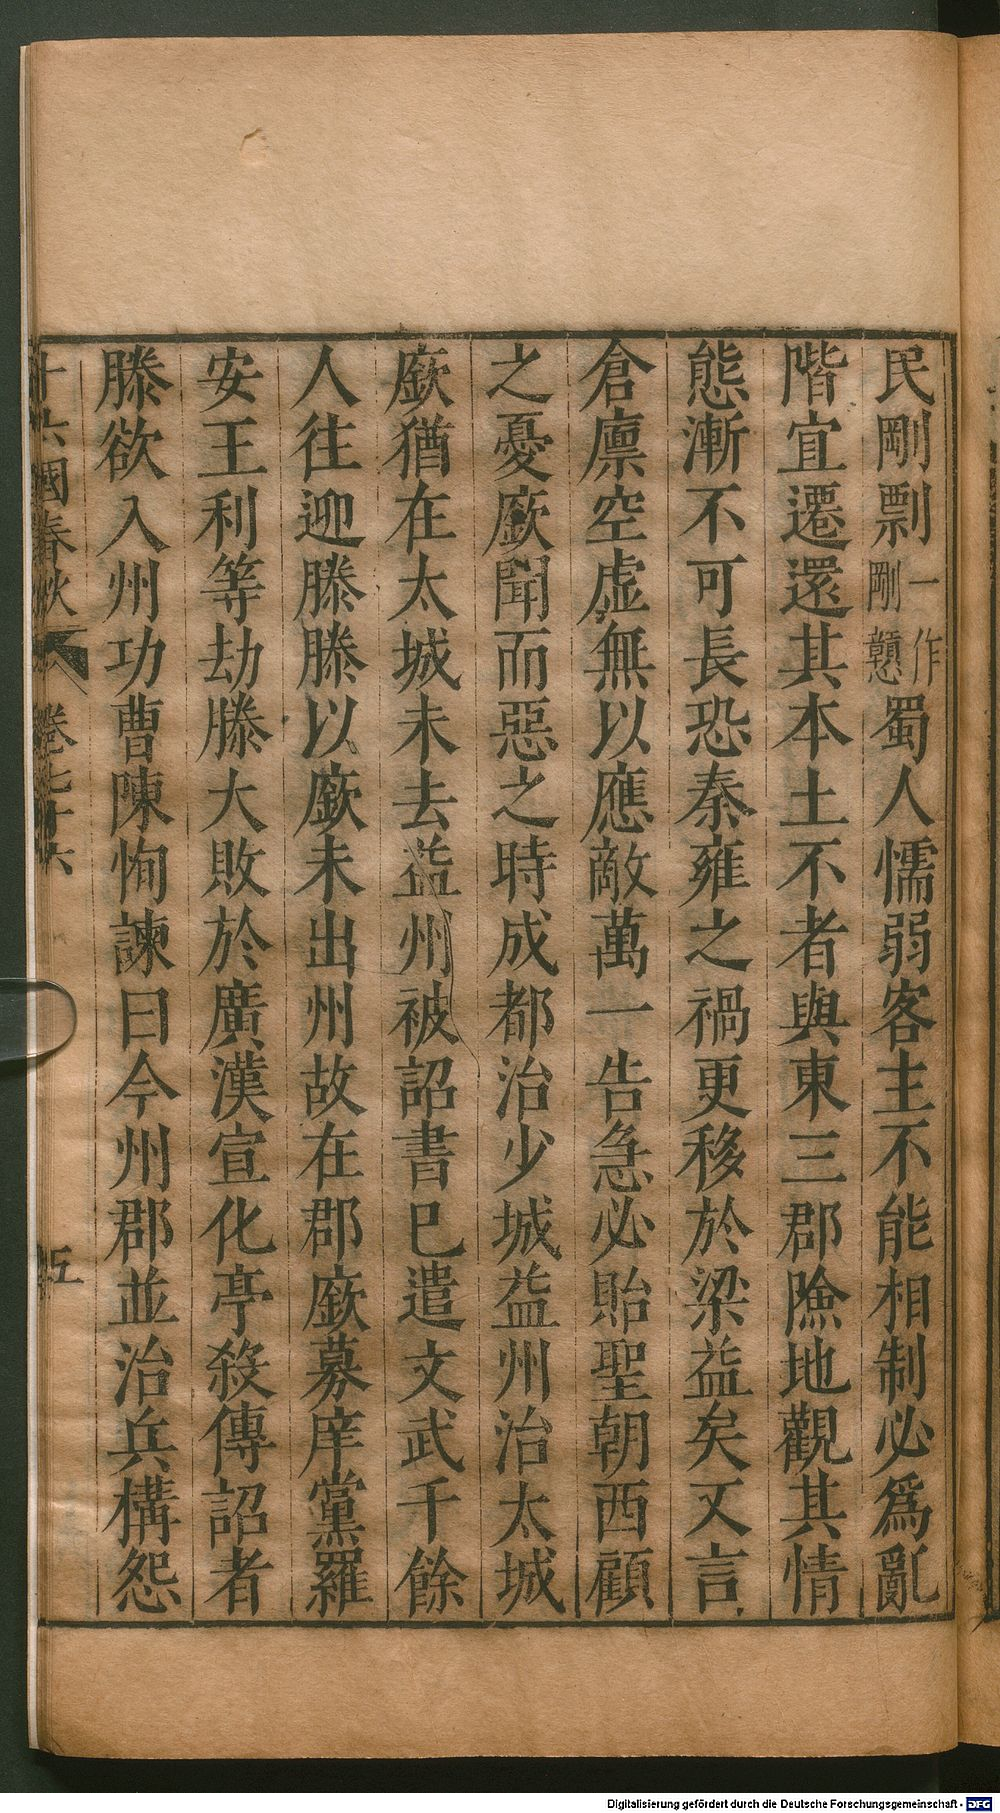 民剛剽一作剛戇蜀人懦弱客主不能相制必爲亂
階宜遷還其本土不者與東三郡險地觀其情
態漸不可長恐秦雍之禍更移於梁益矣又言
倉廪空虛無以應敵萬一告急必貽聖朝西顧
之憂廞聞而惡之時成都治少城益州治太城
廞猶在太城未去益州被詔書已遣文武千餘
人往迎滕滕以廞未出州故在郡廞募庠黨羅
安王利等劫滕大敗於廣漢宣化亭殺傳詔者
滕欲入州功曹陳恂諫曰今州郡並治兵構怨
十六國春秋 卷七十六 五
Digitalisierung gefördert durch die Deutsche Forschungsgemeinschaft - DFG